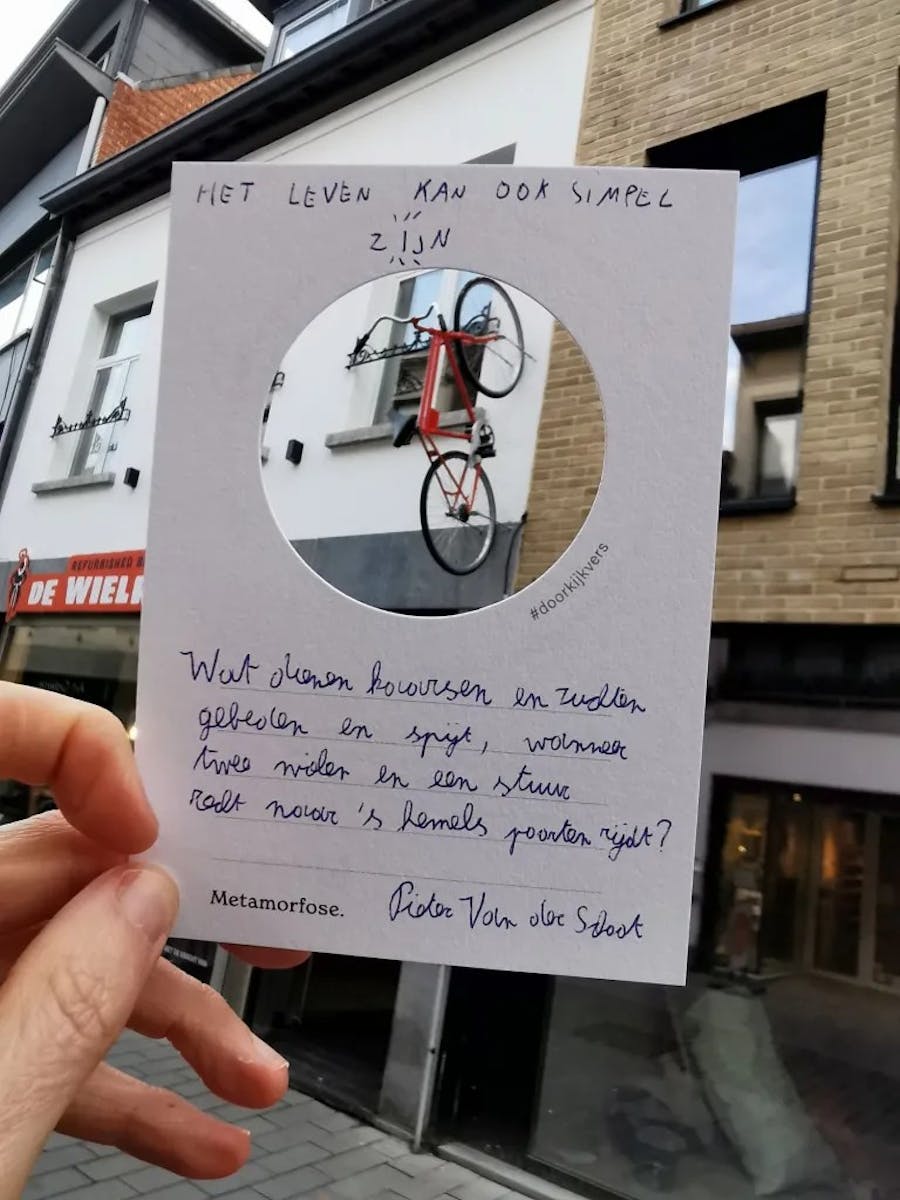 HET LEVEN KAN OOK SIMPEL
ZIJN
#doorkijkvers
REFURBISHED
DE WIEL
Wat dienen kaarsen en zuchten
gebeden en spijt, wanneer
twee wielen en een stuur
recht naar 's hemels poorten rijdt?
Metamorfose. Pieter Van der Schoot